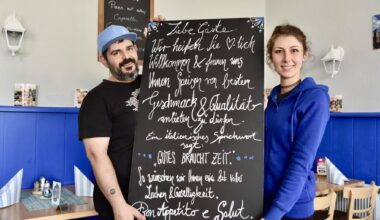 Liebe Gäste
Wir heißen Sie ♡lich
Willkommen & freuen uns
Ihnen Speisen von bestem
Geschmack & Qualität
anbieten zu dürfen.
Ein italienisches Sprichwort
sagt:
"GUTES BRAUCHT ZEIT."
So wünschen wir Ihnen eine Zeit voller
Lachen & Geselligkeit.
Buon Appetito e Salute